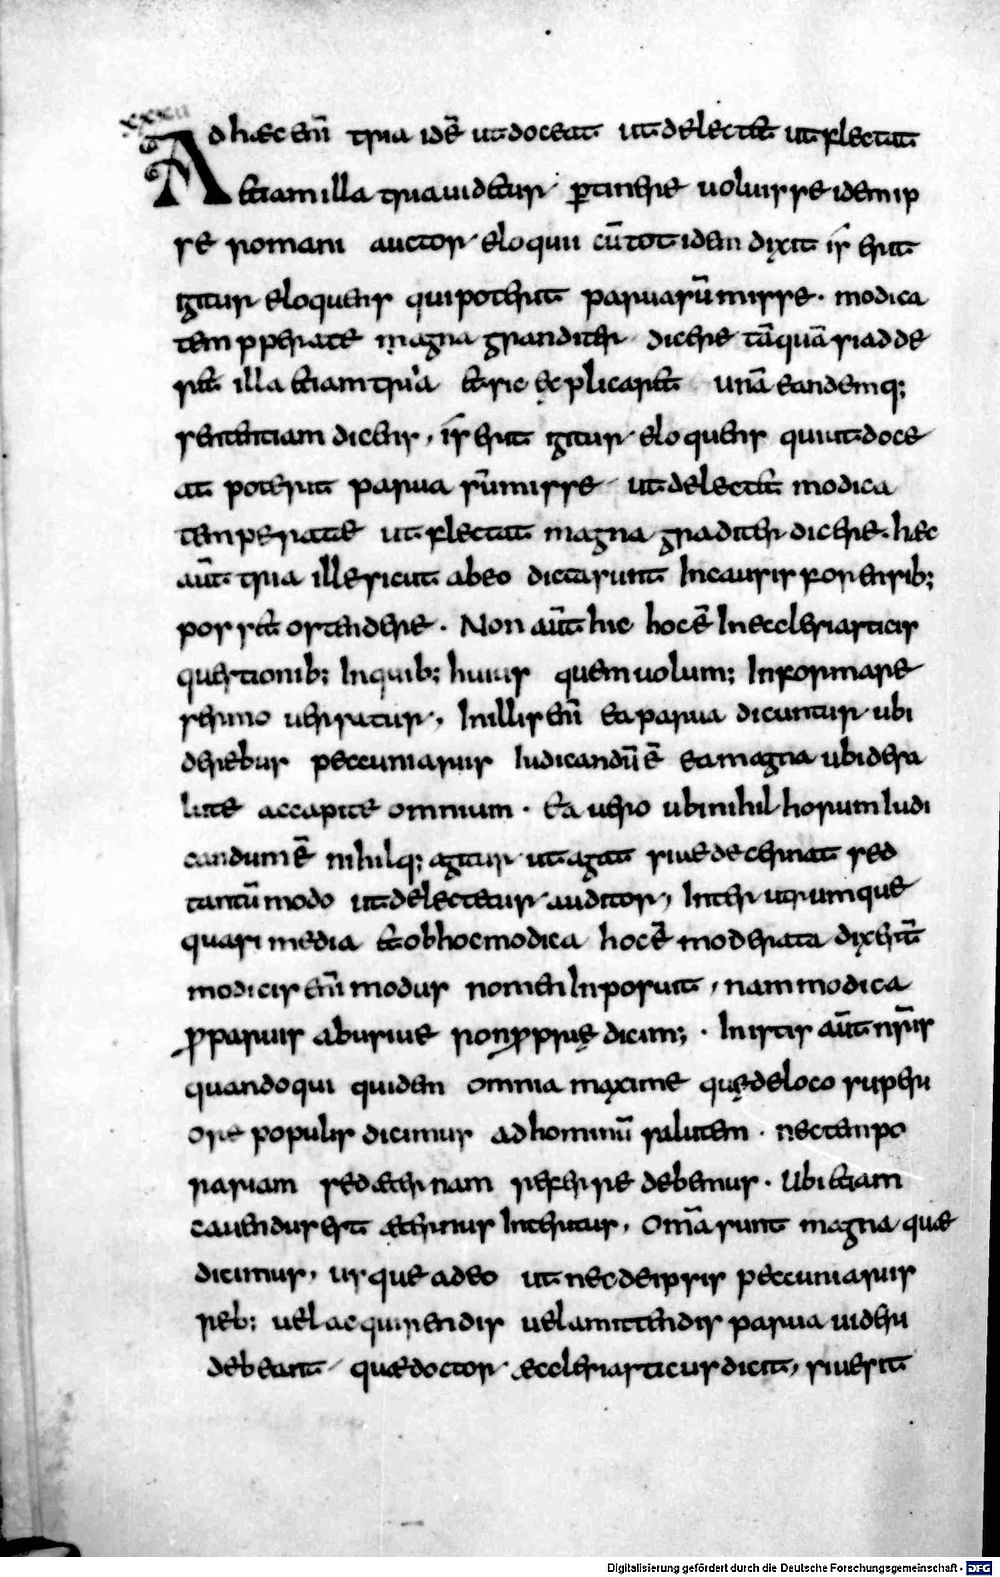 xxxii
Ad haec eni̅ tria id e̅ ut doceat ut delectet ut flectat
etiam illa tria videtur p̲tinere voluisse idem ip
se romani auctor eloquii cu̅ totidem dixit is erit
igitur eloquens qui poterit parva su̅misse · modica
temp̲perate magna granditer dicere ta̅qua̅ si adde
ret illa etiam tria et sic explicaret una̅ eandemq;
sententiam dicens, is erit igitur eloquens qui ut doce
at poterit parva su̅misse ut delectet modica
temperate ut flectat magna graditer dicere · hęc
aut̅ tria ille sicut ab eo dicta sunt In causis forensib;
posset ostendere · Non aut̅ hic hoc e̅ In ecclesiasticis
questionib; In quib; huius quem volum; Informare
sermo versatur, In illis eni̅ ea parva dicuntur ubi
de rebus peccuniarus Iudicandu̅ e̅ ea magna ubi de sa
lute accapite omnium · Ea vero ubi nihil horum Iudi
candum e̅ nihilq; agitur ut agat sive decernat sed
tantu̅modo ut delectetur auditor, Inter utrumque
quasi media et ob hoc modica hoc e̅ moderata dixerut̅
modicis eni̅ modus nomen Inposuit, nam modica
p̲ parvis abusive non p̲prię dicim; · In istis aut̅ nr̅is
quandoqui quidem omnia maxime quę de loco superi
ore populis dicimus ad hominu̅ salutem · nec tenpo
rariam sed aeternam referre debemus · Ubi etiam
cavendus est aeternus Interitus, Om̅a sunt magna quae
dicimus, usque adeo ut nec de ipsis peccuniarus
reb; vel acquirendis vel amittendis parva videri
debeant quae doctor aecclesiasticus dicit, sive sit
Digitalisierung gefördert durch die Deutsche Forschungsgemeinschaft - DFG